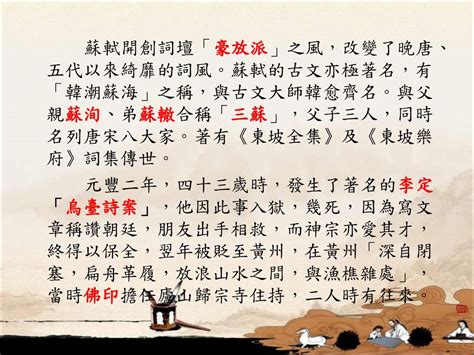 蘇軾開創詞壇「豪放派」之風，改變了晚唐、
五代以來綺靡的詞風。蘇軾的古文亦極著名，有
「韓潮蘇海」之稱，與古文大師韓愈齊名。與父
親蘇洵、弟蘇轍合稱「三蘇」，父子三人，同時
名列唐宋八大家。著有《東坡全集》及《東坡樂
府》詞集傳世。
元豐二年，四十三歲時，發生了著名的李定
「烏臺詩案」，他因此事入獄，幾死，因為寫文
章稱讚朝廷，朋友出手相救，而神宗亦愛其才，
終得以保全，翌年被貶至黃州，在黃州「深自閉
塞，扁舟革履，放浪山水之間，與漁樵雜處」，
當時佛印擔任廬山歸宗寺住持，二人時有往來。